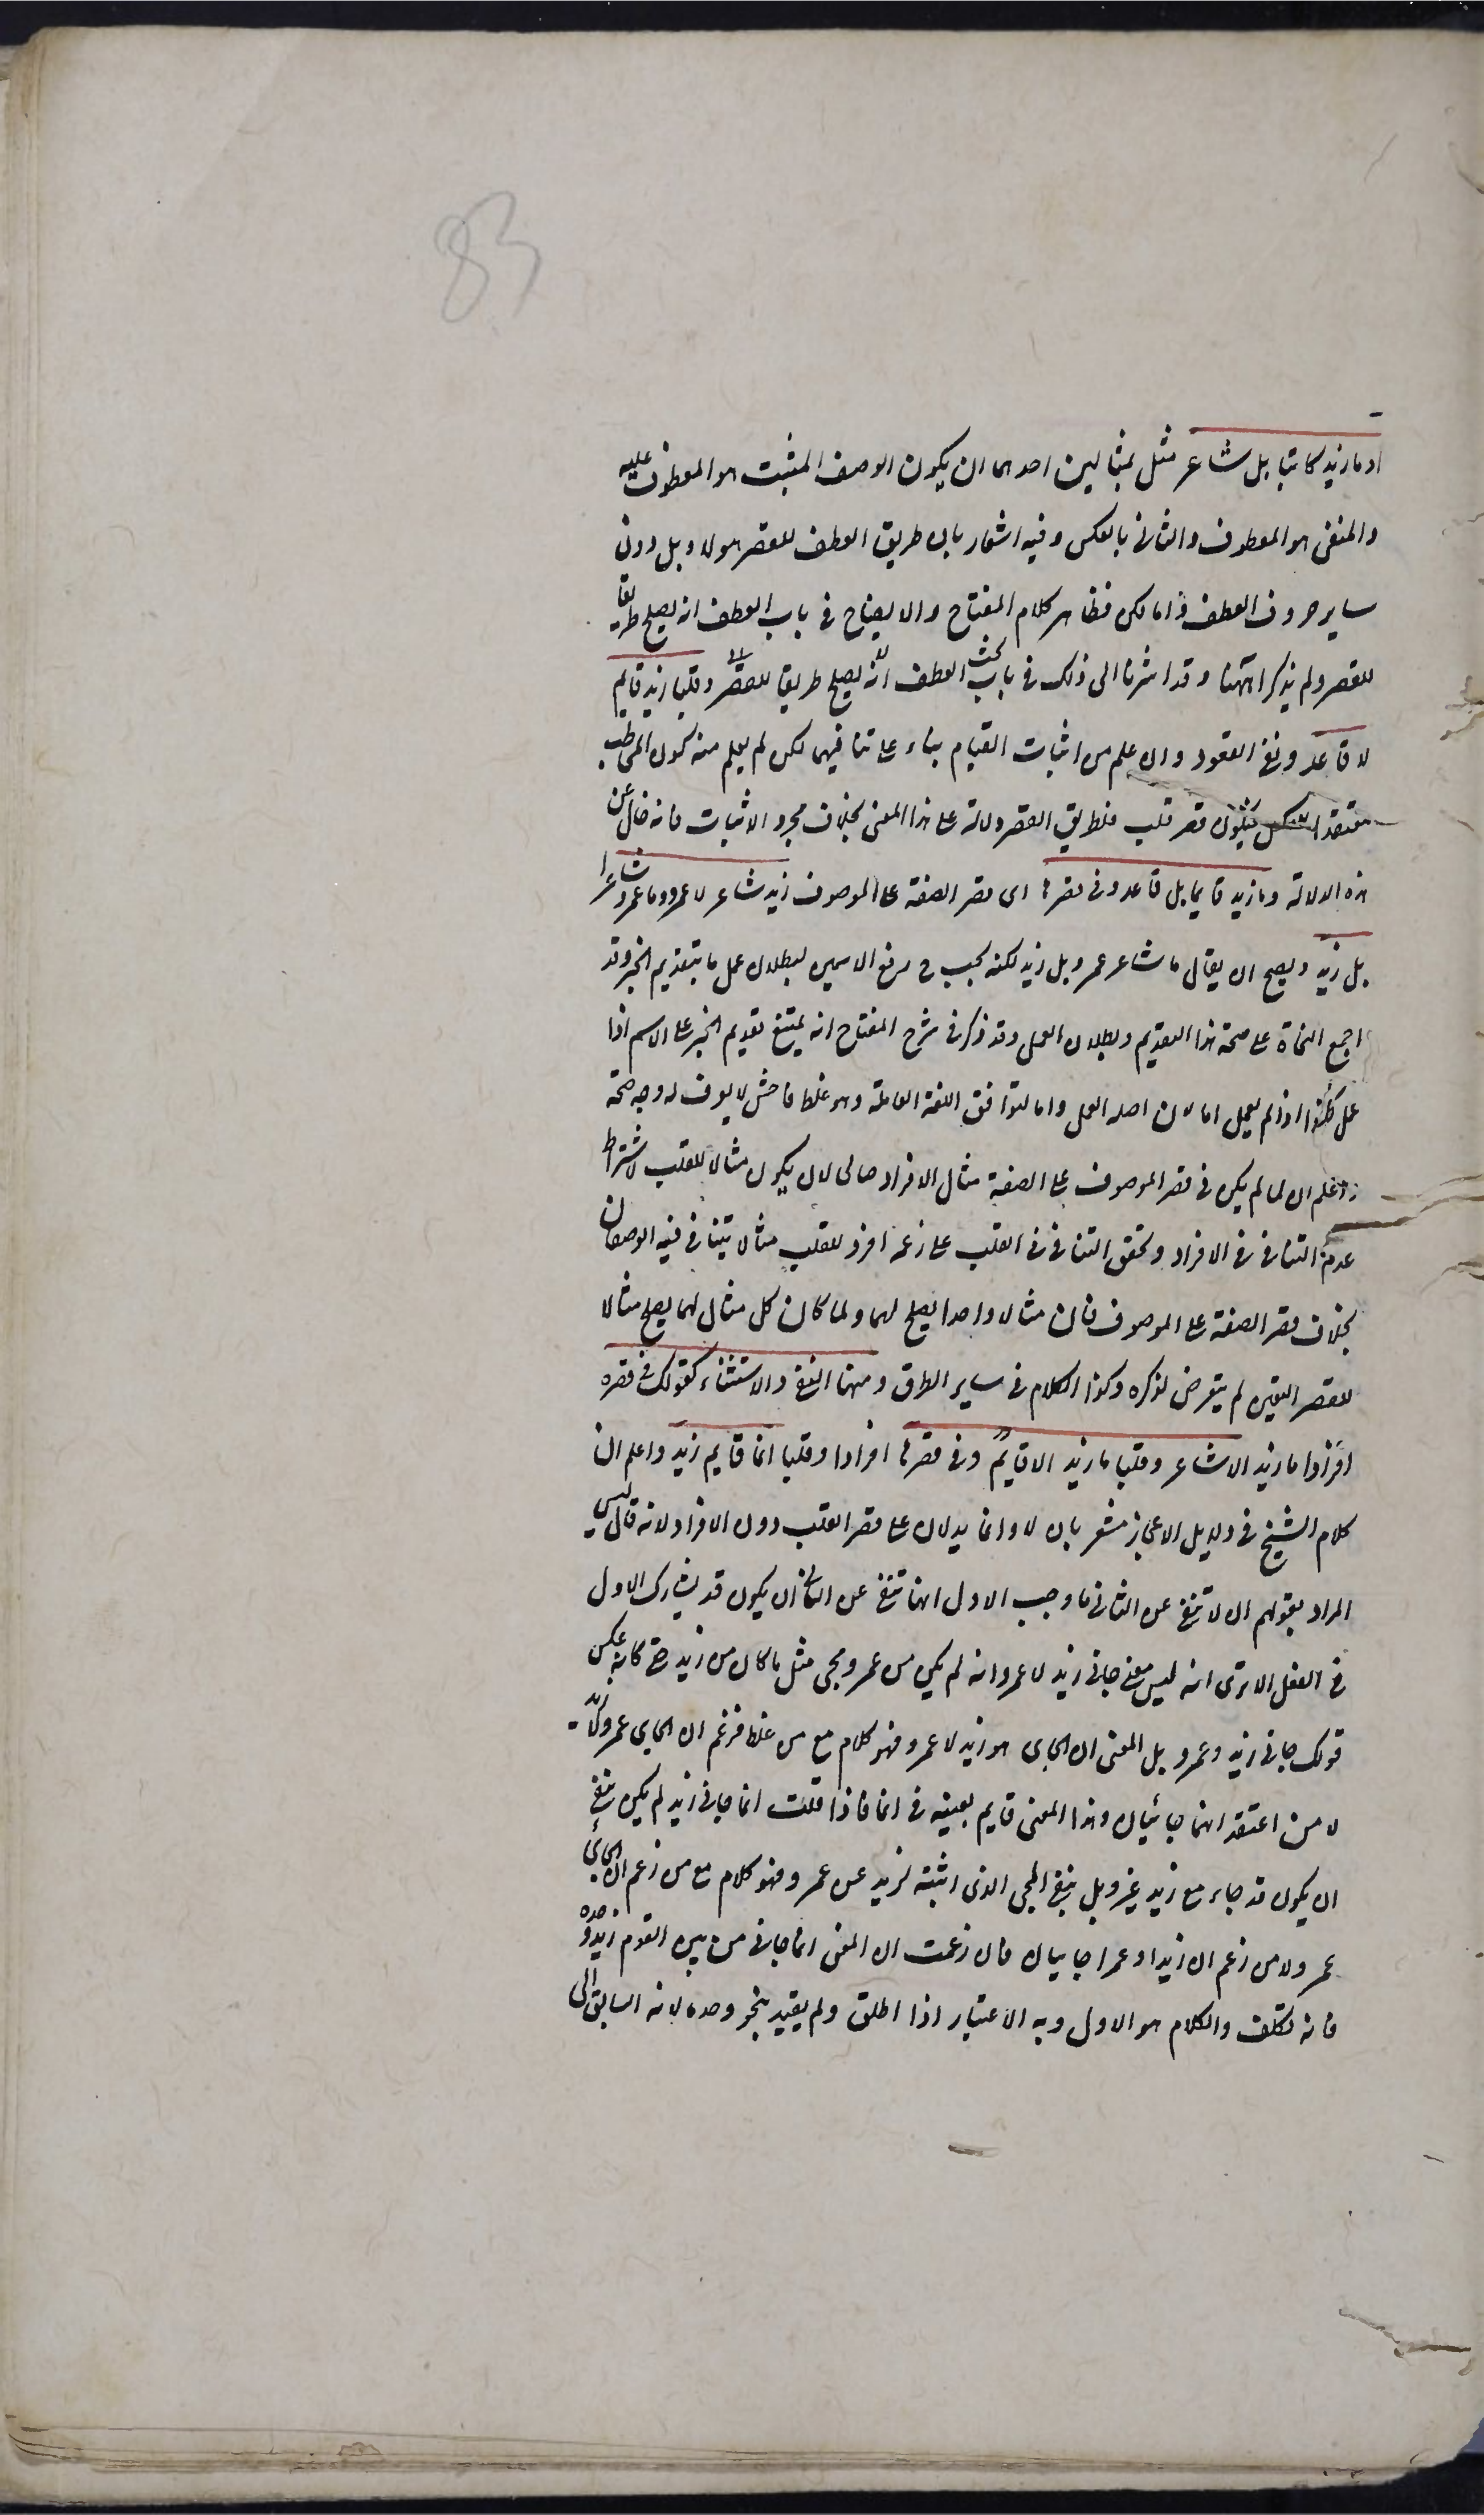 83
او ما زيد كاتبا بل شاعر مثل بمثالين احدهما ان يكون الوصف المثبت هو المعطوف عليه
والمنفى هو المعطوف والثانى بالعكس وفيه اشعار بان طريق العطف للقصر هو لا وبل دون
ساير حروف العطف واما لكن فظاهر كلام المفتاح والايضاح فى باب العطف انه يصلح طريقا
للقصر ولم يذكراه ههنا وقد اشرنا الى ذلك فى باب بحث العطف انه يصلح طريقا للقصر وقلبا زيد قايم
لا قاعد ونفى القعود وان علم من اثبات القيام بناء على تنافيهما لكن لم يعلم منه كون المخاطب
معتقدا للعكس فيكون قصر قلب فلطريق القصر دلالة على هذا المعنى بخلاف مجرد الاثبات فانه خال عن
هذه الدلالة وما زيد قايما بل قاعد وفى قصرها اى قصر الصفة على الموصوف زيد شاعر لا عمرو وما عمرو شاعرا
بل زيد ويصح ان يقال ما شاعر عمرو بل زيد لكنه يجب ح رفع الاسمين لبطلان عمل ما بتقديم الخبر وقد
اجمع النحاة على صحة هذا التقديم وبطلان العمل وقد ذكر فى شرح المفتاح انه يمتنع تقديم الخبر على الاسم اذا
عمل وكذا اذا لم يعمل اما لان اصله العمل واما لتوافق اللغة العاملة وهو غلط فاحش لا يعرف له وجه صحة
واعلم ان لما لم يكن فى قصر الموصوف على الصفة مثال الافراد صالحا لان يكون مثالا للقلب لاشتراط
عدم التنافى فى الافراد وتحقق التنافى فى القلب على زعمه افرد للقلب مثالا يتنافى فيه الوصفان
بخلاف قصر الصفة على الموصوف فان مثالا واحدا يصلح لهما ولما كان كل مثال لهما يصلح مثالا
لقصر التعيين لم يتعرض لذكره وكذا الكلام فى ساير الطرق ومنها النفى والاستثناء كقولك فى قصره
افرادا ما زيد الا شاعر وقلبا ما زيد الا قايم وفى قصرها افرادا وقلبا انما قايم زيد واعلم ان
كلام الشيخ فى دلايل الاعجاز مشعر بان لا وانما يدلان على قصر القلب دون الافراد لانه قال ليس
المراد بقولهم ان لا تنفى عن الثانى ما وجب للاول انها تنفى عن الثانى ان يكون قد يشارك الاول
فى الفعل الا ترى انه ليس معنى جانى زيد لا عمرو انه لم يكن من عمرو مجى مثل ما كان من زيد حتى كانه عكس
قولك جانى زيد وعمرو بل المعنى ان الجاى هو زيد لا عمرو فهو كلام مع من غلط فزعم ان الجاى عمرو لا زيد
لا من اعتقد انهما جائيان وهذا المعنى قايم بعينه فى انما فاذا قلت انما جانى زيد لم يكن تنفى
ان يكون قد جاء مع زيد غيره بل تنفى المجى الذى اثبته لزيد عن عمرو فهو كلام مع من زعم ان الجائى
عمرو لا من زعم ان زيدا وعمرا جايان فان زعمت ان المعنى انما جانى من بين القوم زيد وحده
فانه تكلف والكلام هو الاول وبه الاعتبار اذا اطلق ولم يقيد بنحو وحده لانه السابق الى